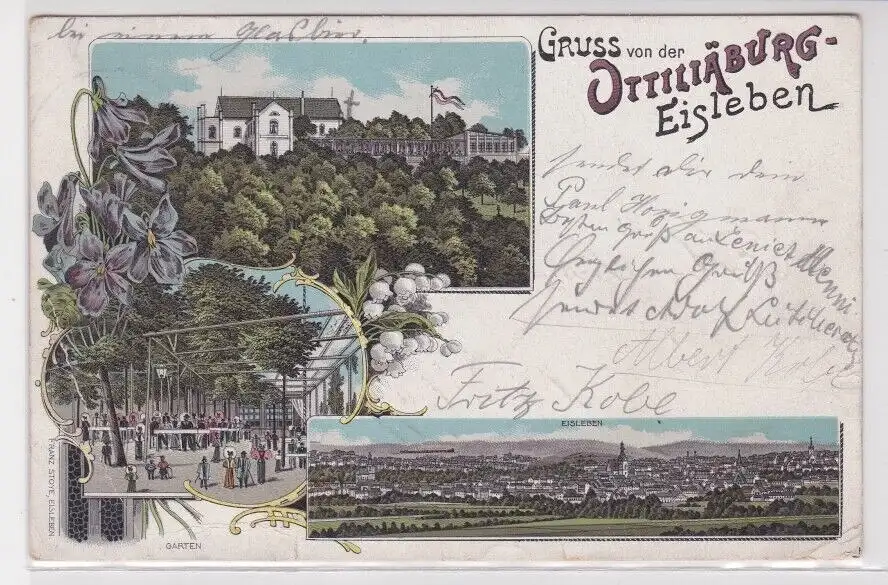 bei einem Glas Bier.
GRUSS von der
OTTILIÄBURG-
Eisleben
sendet dir dein
Paul
Besten Gruß an
Herzlichen Gruß
sendet Adolf
Albert
Fritz Kobe
EISLEBEN
FRANZ STOYE, EISLEBEN.
GARTEN